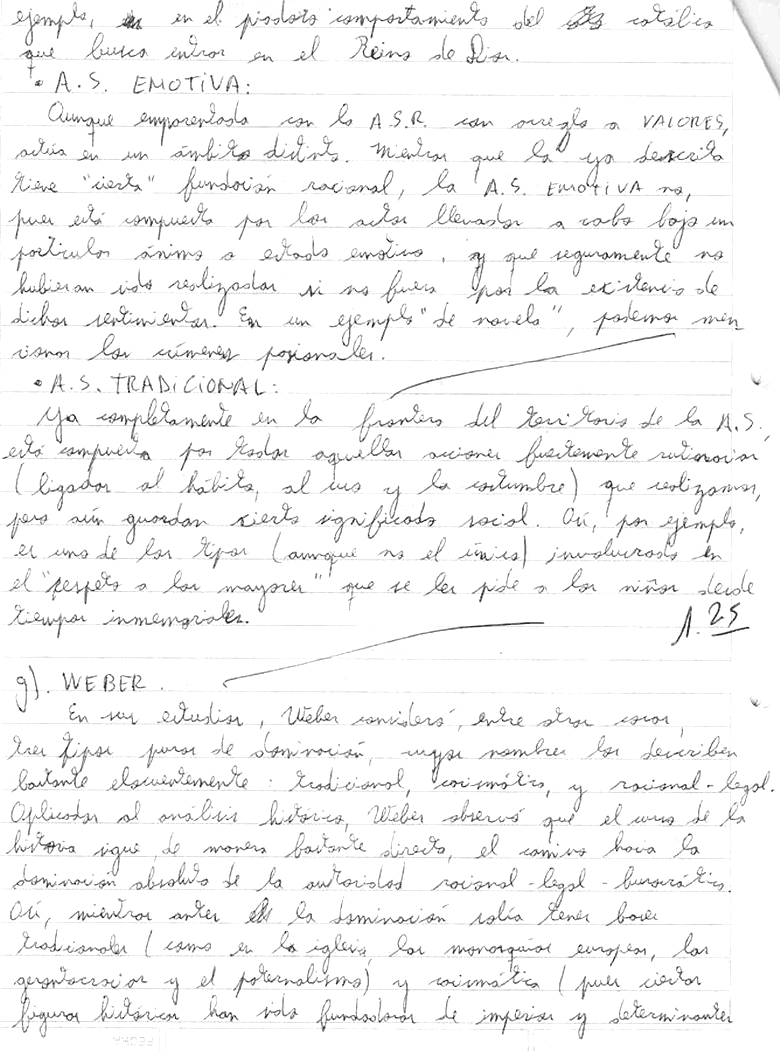 ejemplo, en el piadoso comportamiento del católico
que busca entrar en el Reino de Dios.
• A.S. EMOTIVA:
Aunque emparentada con la A.S.R. con arreglo a VALORES,
actúa en un ámbito distinto. Mientras que la ya descrita
tiene "cierta" fundación racional, la A.S. EMOTIVA no,
pues está compuesta por los actos llevados a cabo bajo un
particular ánimo o estado emotivo, y que seguramente no
hubieran sido realizados si no fuera por la existencia de
dichos sentimientos. En un ejemplo "de novela", podemos men
cionar los crímenes pasionales.
• A.S. TRADICIONAL:
Ya completamente en la frontera del territorio de la A.S,
está compuesta por todas aquellas acciones fuertemente rutinarias
(ligadas al hábito, al uso y la costumbre) que realizamos,
pero aún guardan cierto significado social. Así, por ejemplo,
es uno de los tipos (aunque no el único) involucrado en
el "respeto a los mayores" que se les pide a los niños desde
tiempos inmemoriales.
1.25
g). WEBER.
En sus estudios, Weber consideró, entre otras cosas,
tres tipos puros de dominación, cuyos nombres los describen
bastante elocuentemente: tradicional, carismática, y racional-legal.
Aplicados al análisis histórico, Weber observó que el curso de la
historia sigue, de manera bastante directa, el camino hacia la
dominación absoluta de la autoridad racional-legal-burocrática.
Así, mientras antes la dominación solía tener bases
tradicionales (como en la iglesia, las monarquías europeas, las
gerontocracias y el paternalismo) y carismática (pues ciertas
figuras históricas han sido fundadoras de imperios y determinantes